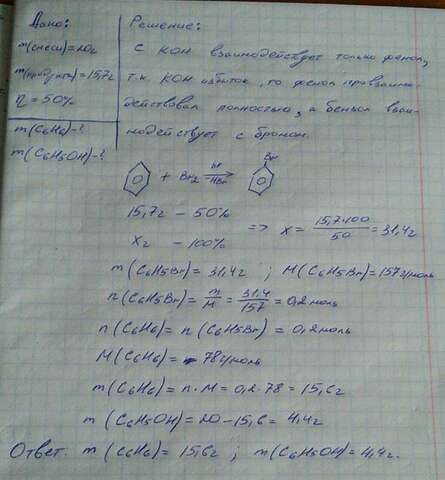 Дано:
m(смеси)=20г
m(продукта)=15,7г
η = 50%
m(C6H6)-?
m(C6H5OH)-?
Решение:
С КОН взаимодействует только фенол,
т.к. КОН избыток, то фенол провзаимо-
действовал полностью, а бензол взаи-
модействует с бромом.
+ Br2 →
-HBr
Br
15,7г – 50%
x г – 100%
=> x = 15,7·100 / 50 = 31,4г
m(C6H5Br)= 31,4г ; M(C6H5Br)=157г/моль
n(C6H5Br)= m/M = 31,4/157 = 0,2 моль
n(C6H6)= n(C6H5Br)= 0,2моль
M(C6H6)= 78г/моль
m(C6H6)= n·M=0,2·78=15,6г
m(C6H5OH)=20-15,6=4,4г
Ответ: m(C6H6)= 15,6г ; m(C6H5OH)=4,4г.